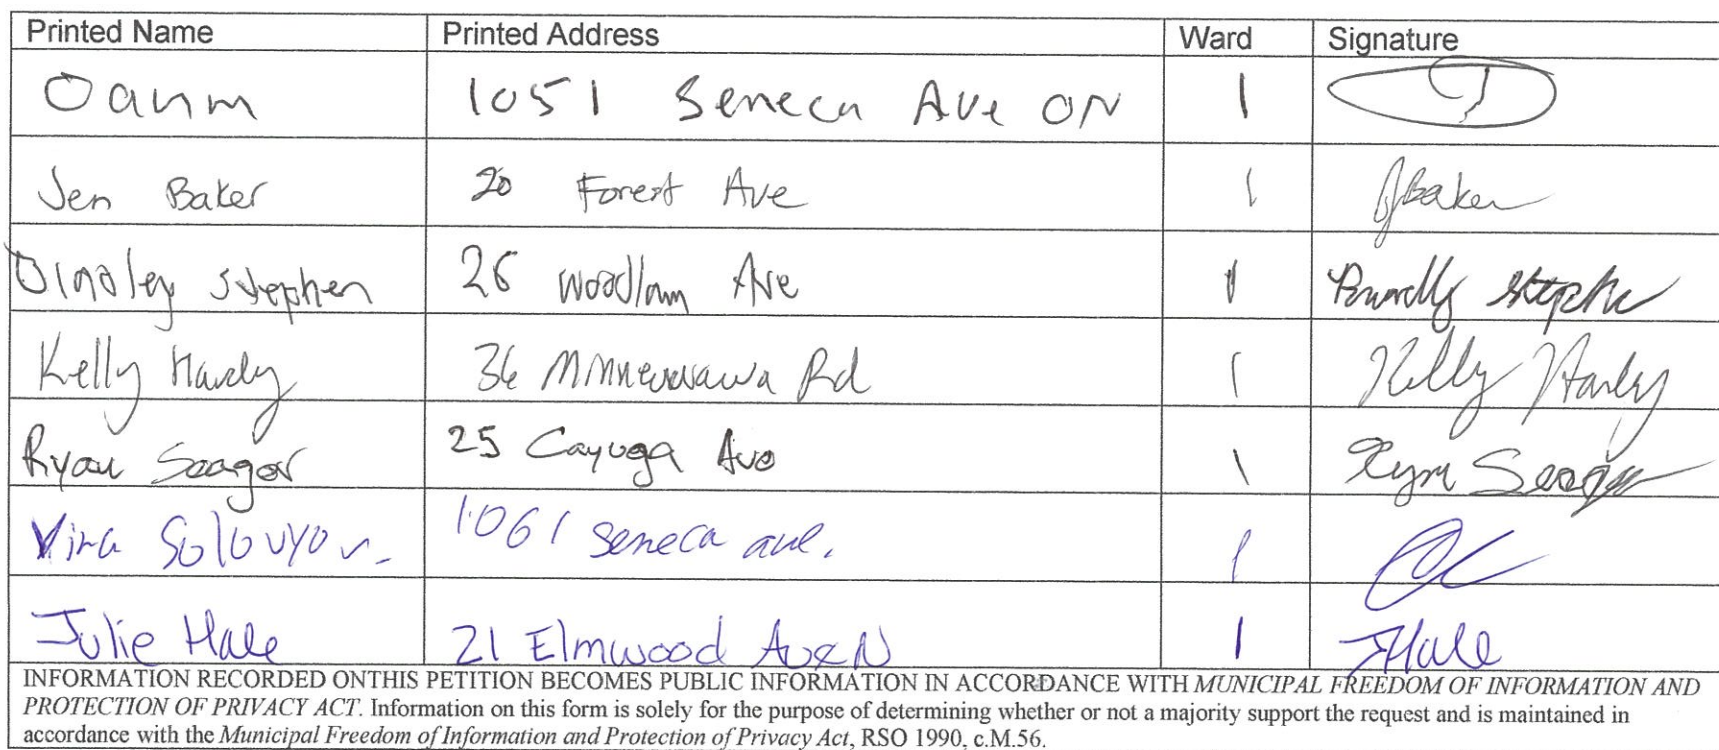 Printed Name Printed Address Ward Signature
Oanm 1051 Seneca Ave ON 1
Jen Baker 20 Forest Ave 1 JBaker
Stephen 26 Woodlawn Ave 1
Kelly Hardy 36 Minnewawa Rd 1 Kelly Hardy
Ryan Seager 25 Cayuga Ave 1 Ryan Seager
Vira 1061 Seneca ave. 1
Julie Hale 21 Elmwood Ave N 1 JHale
INFORMATION RECORDED ONTHIS PETITION BECOMES PUBLIC INFORMATION IN ACCORDANCE WITH MUNICIPAL FREEDOM OF INFORMATION AND
PROTECTION OF PRIVACY ACT. Information on this form is solely for the purpose of determining whether or not a majority support the request and is maintained in
accordance with the Municipal Freedom of Information and Protection of Privacy Act, RSO 1990, c.M.56.